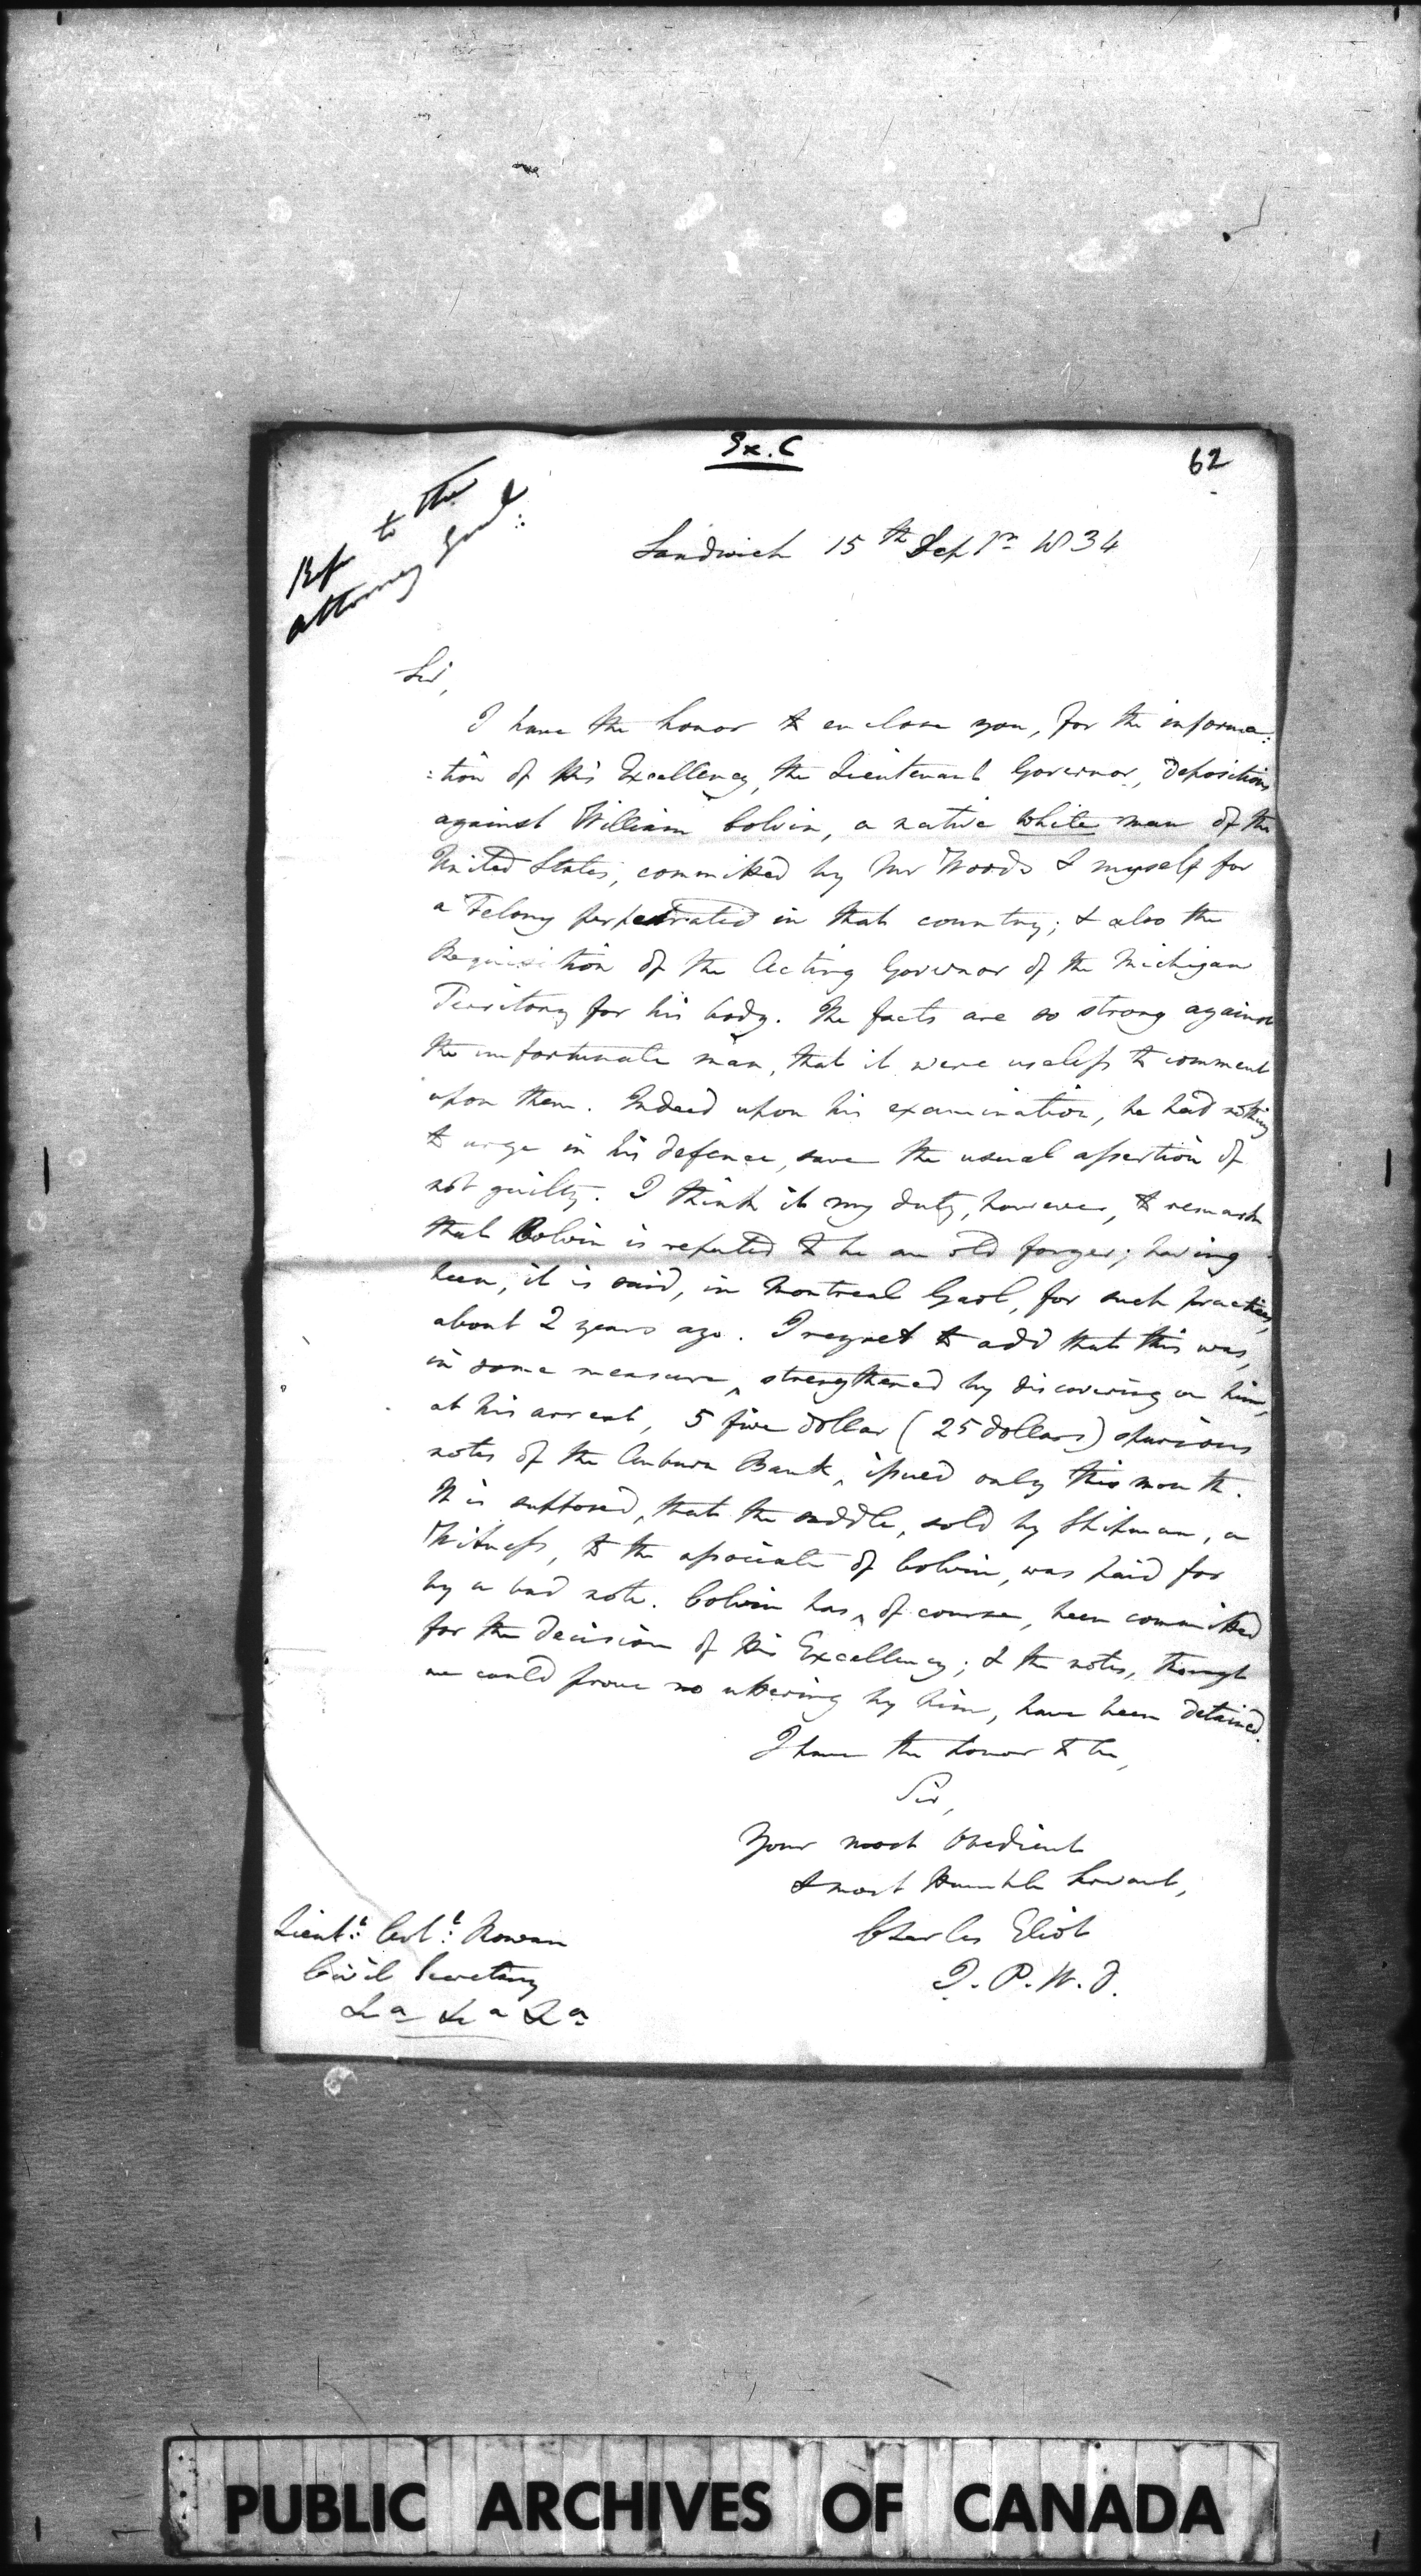 Ex. C
62
Ref to the
Attorney Genl
Sandwich 15th Sepr 1834
Sir,
I have the honor to enclose you, for the informa:
:tion of His Excellency, the Lieutenant Governor, Depositions
against William Colvin, a native white man of the
United States, committed by Mr Woods & myself for
a Felony perpetrated in that country; & also the
Requisition of the Acting Governor of the Michigan
Territory for his body. The facts are so strong against
the unfortunate man, that it were useless to comment
upon them. Indeed upon his examination, he had nothing
to urge in his defence, save the usual assertion of
not guilty. I think it my duty, however, to remark
that Colvin is reputed to be an old forger; having
been, it is said, in Montreal Gaol, for such practices,
about 2 years ago. I regret to add that this was,
in some measure, strengthened by discovering on him,
at his arrest, 5 five dollar (25 dollars) spurious
notes of the Auburn Bank, issued only this month.
It is supposed, that the saddle, sold by Shipman, a
Witness, to the associate of Colvin, was paid for
by a bad note. Colvin has, of course, been committed
for the decision of His Excellency; & the notes, though
we could prove no uttering by him, have been detained.
I have the honor to be,
Sir,
Your most Obedient
& most Humble Servant,
Charles Eliot
J. P. W. D.
Lieut: Col: Rowan
Civil Secretary
&a &a &a
PUBLIC ARCHIVES OF CANADA